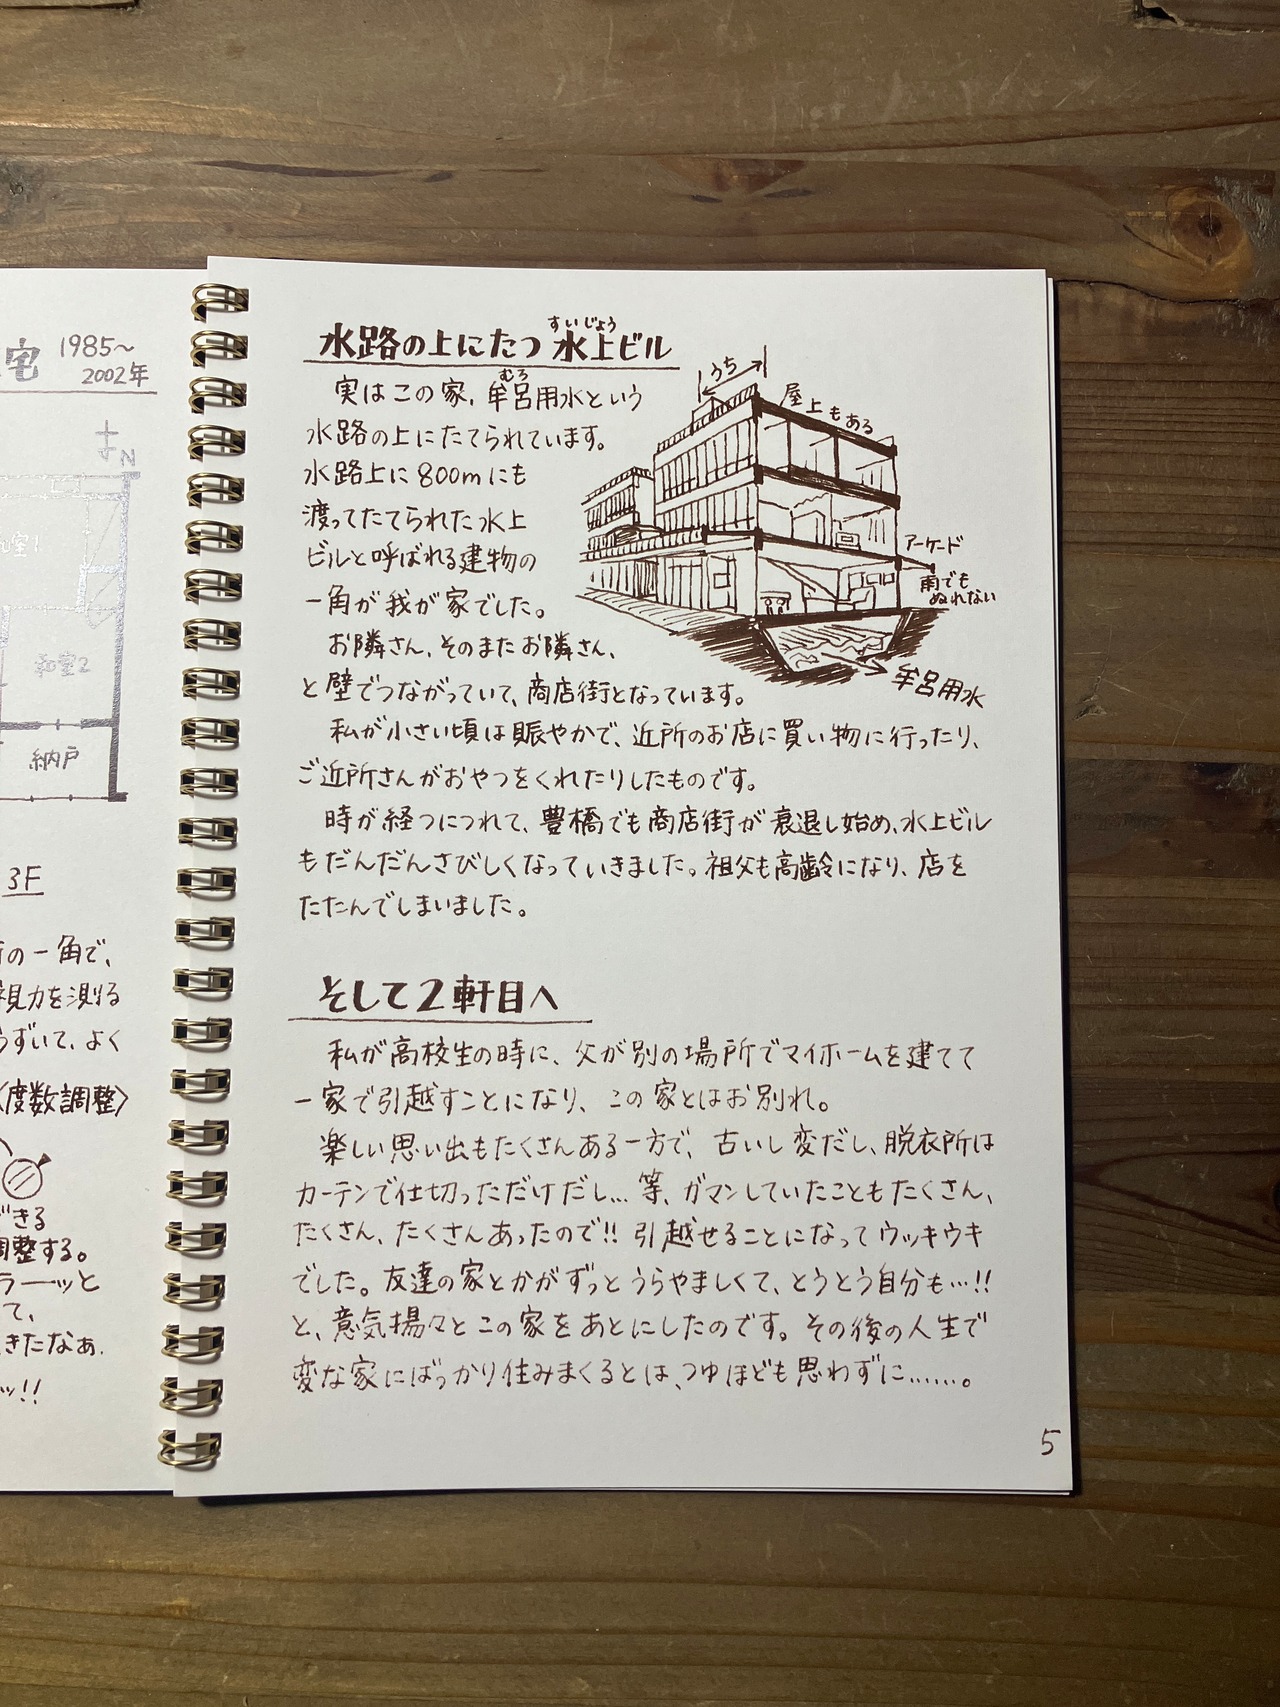 宅 1985〜
2002年
N
和室1
和室2
納戸
3F
の一角で、
視力を測る
うずいて、よく
〈度数調整〉
できる
調整する。
ラーーッと
て、
きたなぁ.
ッ!!
すいじょう
水路の上にたつ 水上ビル
むろ
実はこの家、牟呂用水という
水路の上にたてられています。
水路上に800mにも
渡ってたてられた水上
ビルと呼ばれる建物の
一角が我が家でした。
お隣さん、そのまたお隣さん、
と壁でつながっていて、商店街となっています。
うち
屋上もある
アーケード
雨でも
ぬれない
牟呂用水
私が小さい頃は賑やかで、近所のお店に買い物に行ったり、
ご近所さんがおやつをくれたりしたものです。
時が経つにつれて、豊橋でも商店街が衰退し始め、水上ビル
もだんだんさびしくなっていきました。祖父も高齢になり、店を
たたんでしまいました。
そして2軒目へ
私が高校生の時に、父が別の場所でマイホームを建てて
一家で引越すことになり、この家とはお別れ。
楽しい思い出もたくさんある一方で、古いし変だし、脱衣所は
カーテンで仕切っただけだし…等、ガマンしていたこともたくさん、
たくさん、たくさんあったので!! 引越せることになってウッキウキ
でした。友達の家とかがずっとうらやましくて、とうとう自分も…!!
と、意気揚々とこの家をあとにしたのです。その後の人生で
変な家にばっかり住みまくるとは、つゆほども思わずに……。
5